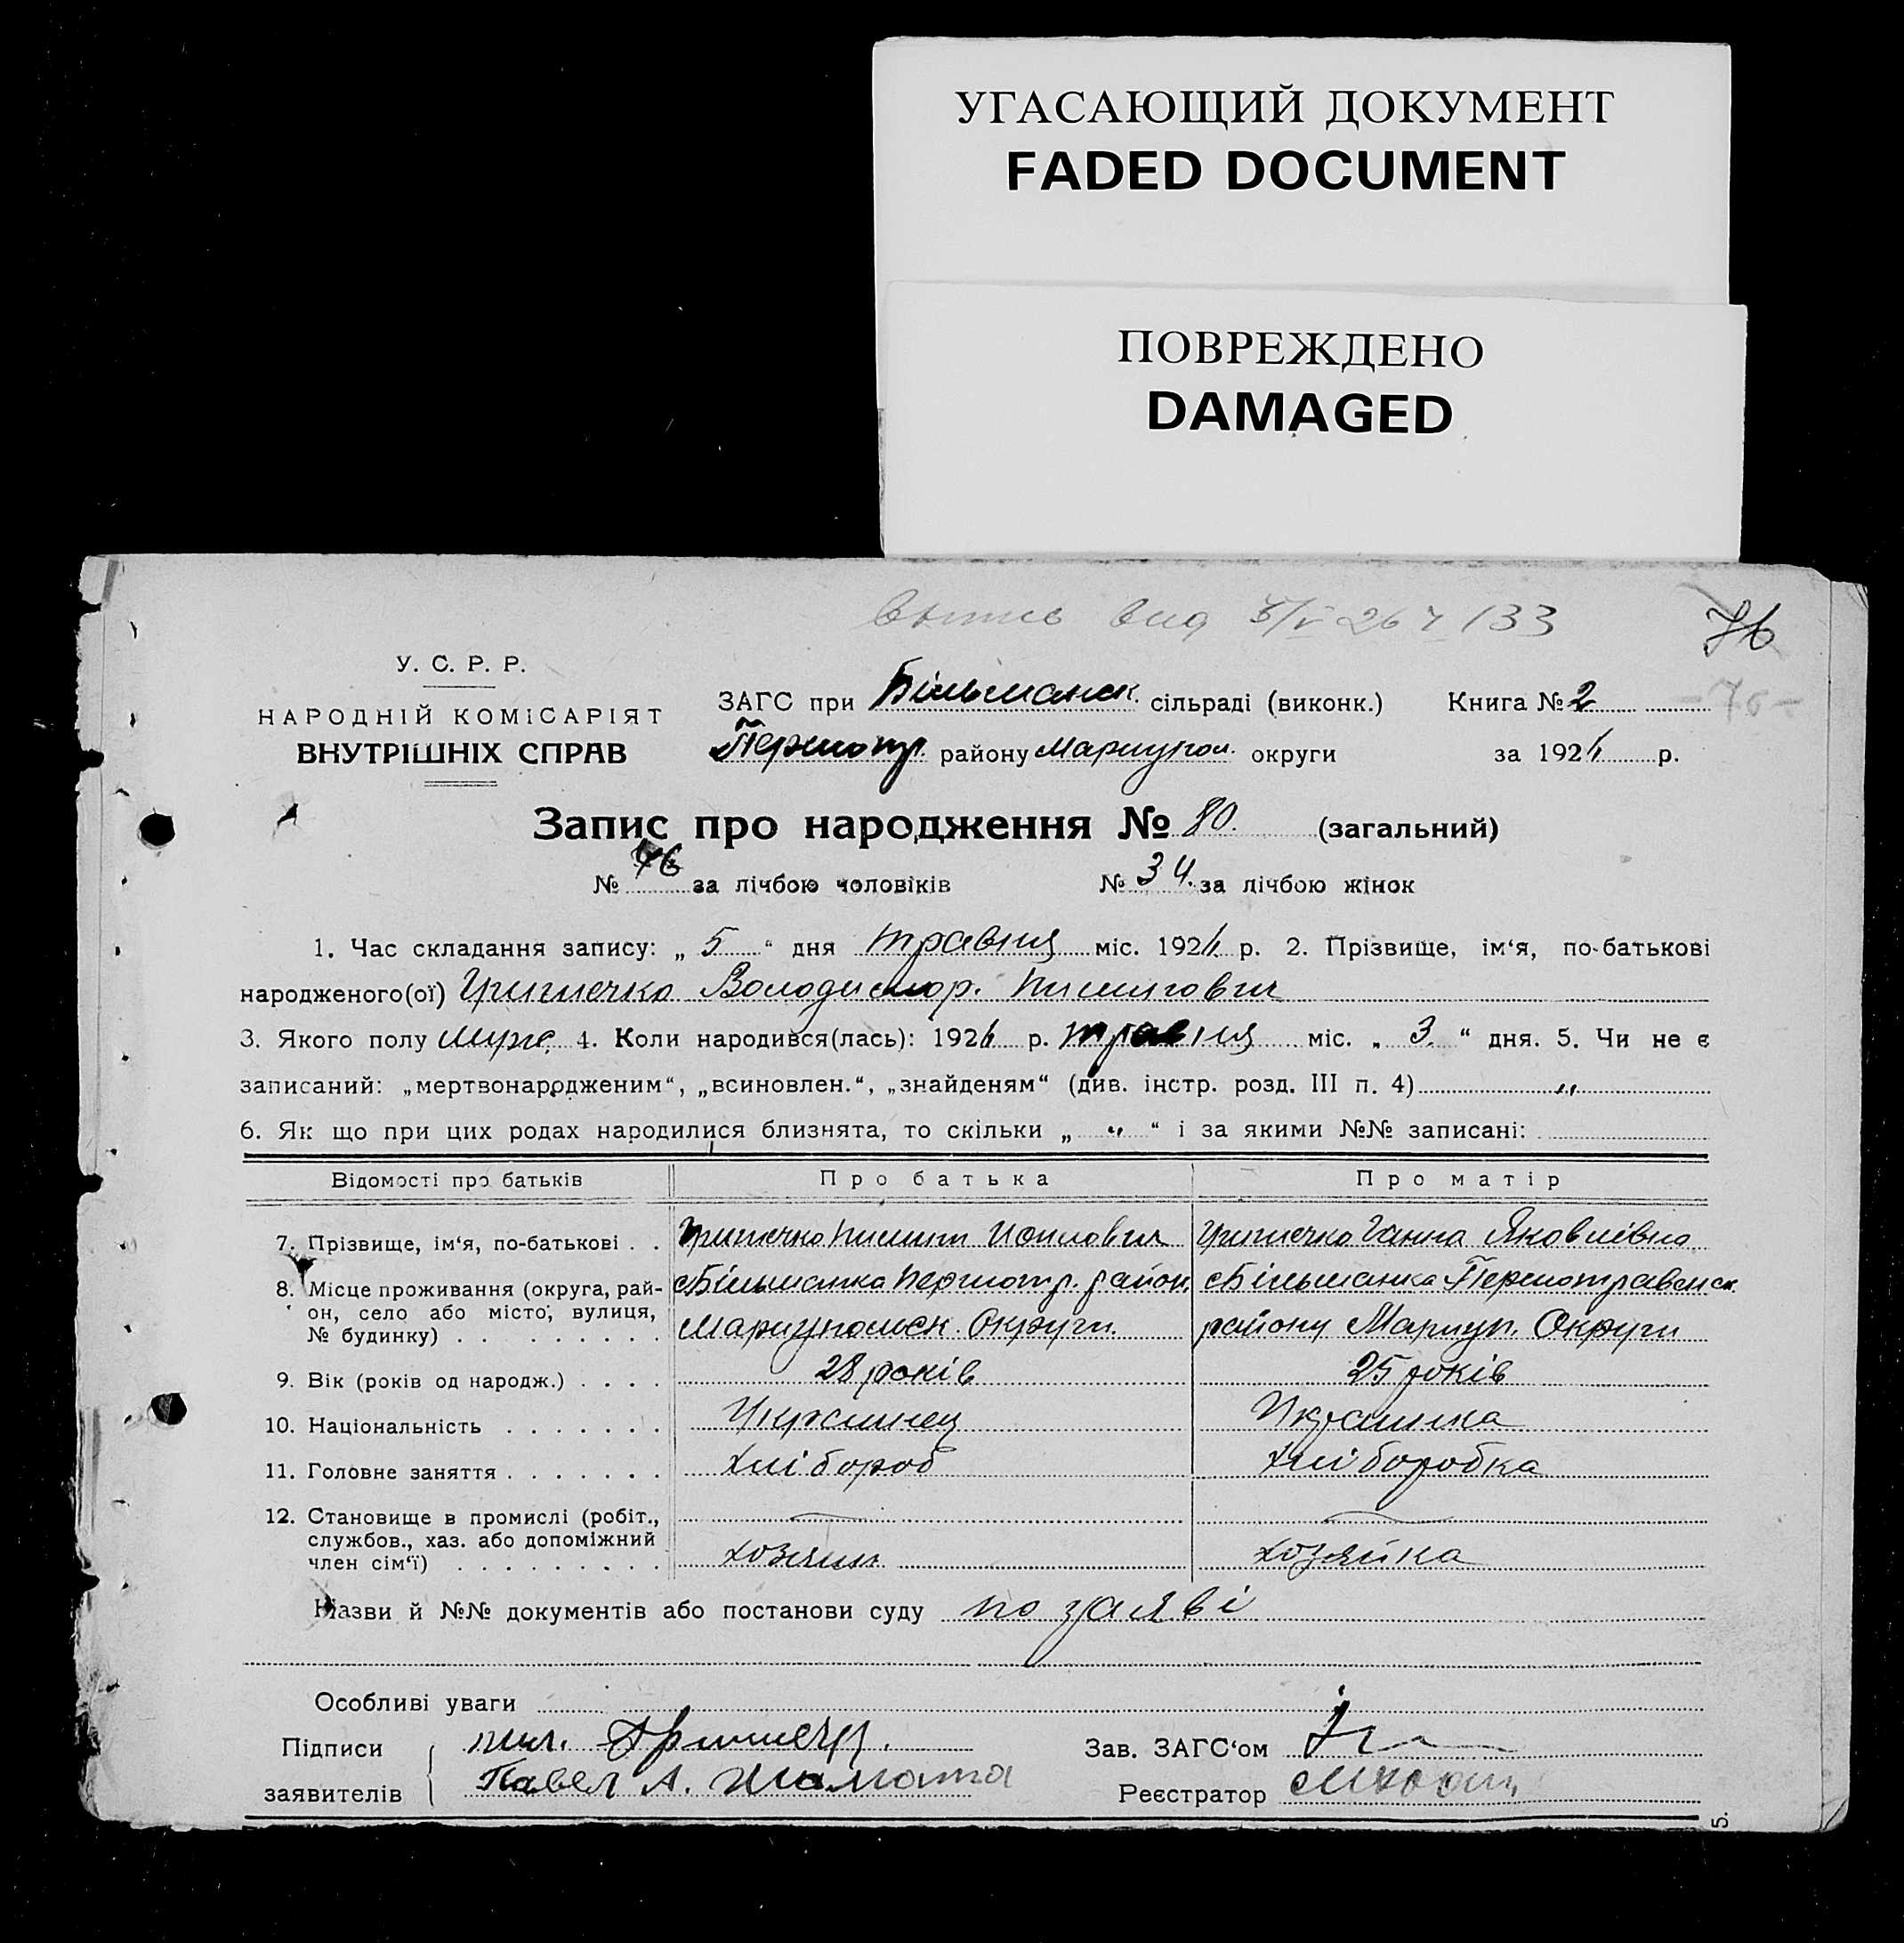 УГАСАЮЩИЙ ДОКУМЕНТ
FADED DOCUMENT
ПОВРЕЖДЕНО
DAMAGED
вид 5/V 26 г 133
76
У. С. Р. Р.
НАРОДНІЙ КОМІСАРІЯТ
ВНУТРІШНІХ СПРАВ
ЗАГС при Більманск сільраді (виконк.) Книга № 2 -76-
Першотр. району Маріупол. округи за 1926 р.
Запис про народження № 80. (загальний)
№ 46 за лічбою чоловіків № 34. за лічбою жінок
1. Час складання запису: „ 5 “ дня травня міс. 1926 р. 2. Прізвище, ім‘я, по-батькові
народженого(ої) Володимор. Пилипович
3. Якого полу муж. 4. Коли народився(лась): 1926 р. травня міс. „ 3. “ дня. 5. Чи не є
записаний: „мертвонародженим“, „всиновлен.“, „знайденям“ (див. інстр. розд. III п. 4) „
6. Як що при цих родах народилися близнята, то скільки „ „ “ і за якими №№ записані:
Відомості про батьків Про батька Про матір
7. Прізвище, ім‘я, по-батькові . . Пилип Ганна Яковлівна
8. Місце проживання (округа, рай- с Більманка Першотр. район. с Більманка Першотравенск
он, село або місто, вулиця, Маріупольск. Округи. району Маріуп. Округи
№ будинку) . . . . . . . . .
9. Вік (років од народж.) . . . . 28 років 25 років
10. Національність . . . . . . . Українец Українка
11. Головне заняття . . . . . . . Хлібороб Хліборобка
12. Становище в промислі (робіт.,
службов., хаз. або допоміжний
член сім‘ї) . . . . . . . . . хозяин хозяйка
Назви й №№ документів або постанови суду по заяві
Особливі уваги
Підписи Зав. ЗАГС‘ом
заявителів Павел А. Реєстратор
5.